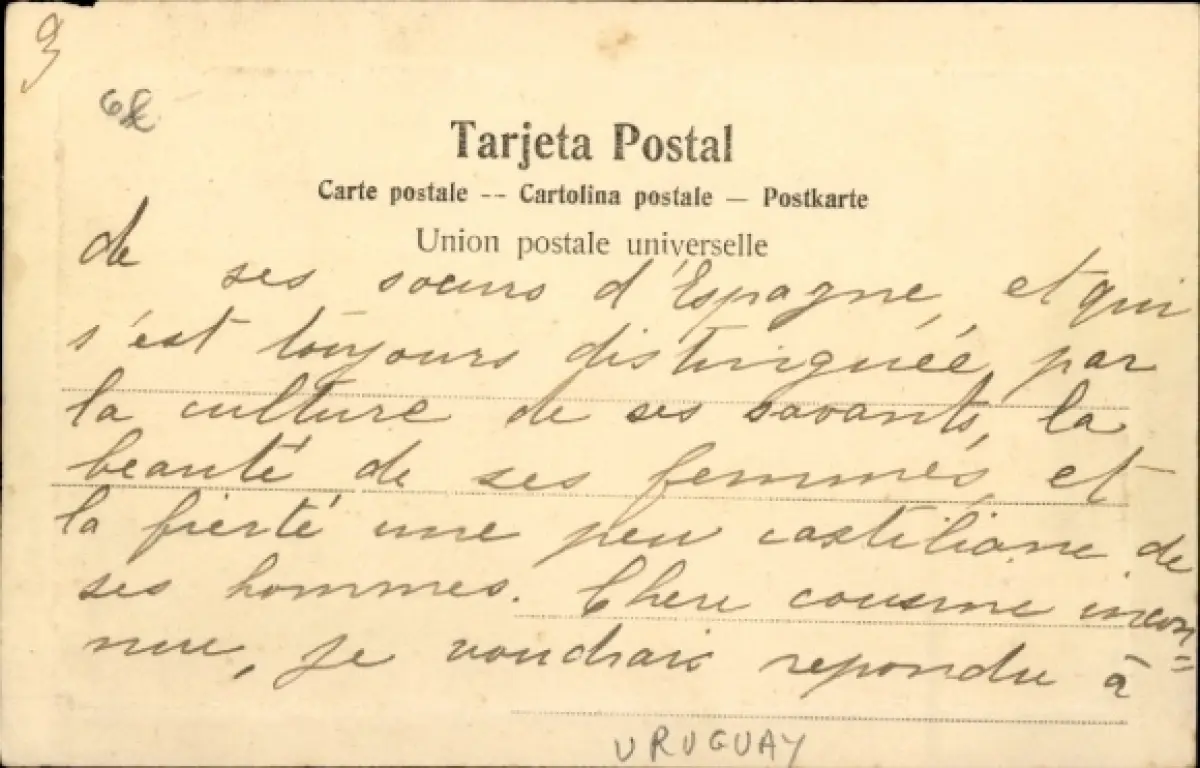 9
6
Tarjeta Postal
Carte postale -- Cartolina postale — Postkarte
Union postale universelle
de ses sœurs d'Espagne, et qui
s'est toujours distinguée par
la culture de ses savants, la
beauté de ses femmes et
la fierté une peu castiliane de
ses hommes. Chere cousine incon=
nue, je voudrais repondre à
URUGUAY